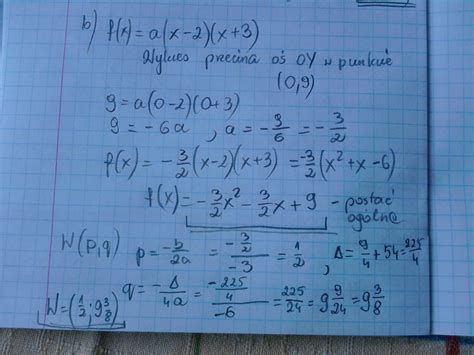 b) f(x) = a(x-2)(x+3)
Wykres przecina oś OY w punkcie
(0,9)
9 = a(0-2)(0+3)
9 = -6a , a = -9/6 = -3/2
f(x) = -3/2(x-2)(x+3) = -3/2(x²+x-6)
f(x) = -3/2x² - 3/2x + 9 - postać
ogólna
W(p,q) p = -b/2a = -3/2/-3 = 1/2 , Δ = 9/4 + 54 = 225/4
q = -Δ/4a = -225/4/-6 = 225/24 = 9 9/24 = 9 3/8
W = (1/2; 9 3/8)